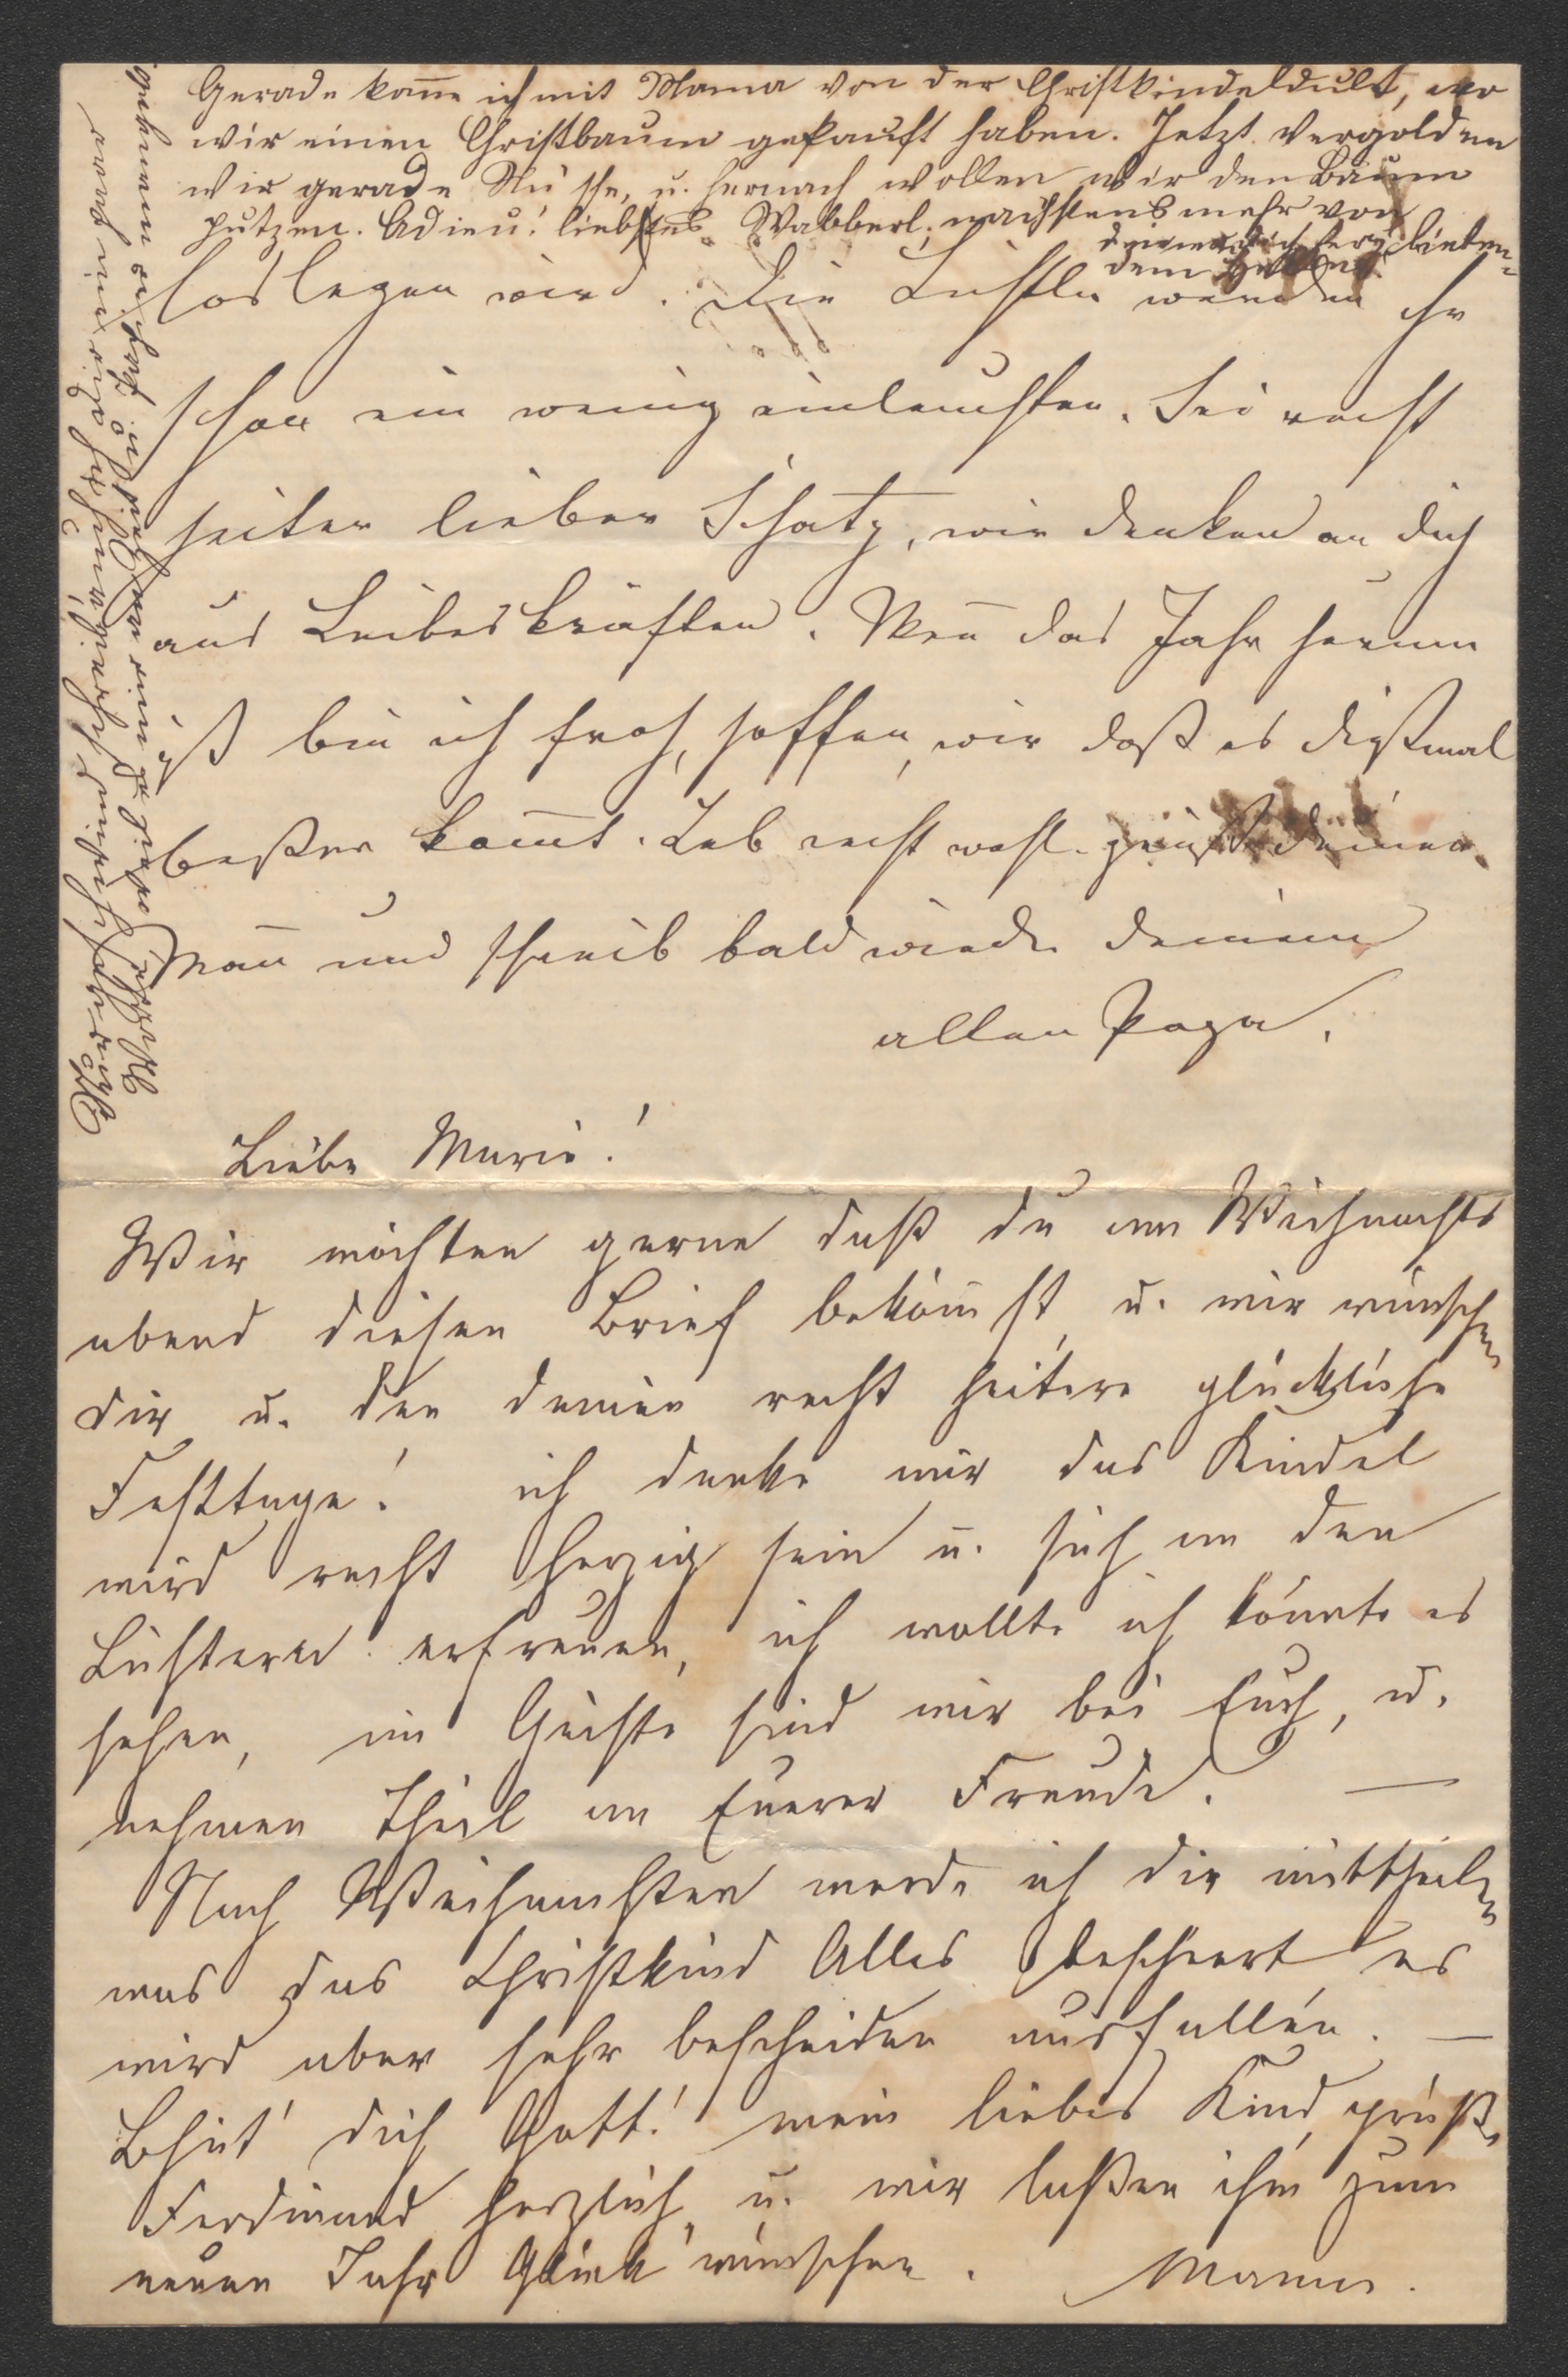 Gerade kom̄e ich mit Mama von der Christkindeldult, wo
wir einen Christbaum gekauft haben. Jetzt vergolden
wir gerade Nüsse, u. hernach wollen wir den Baum
putzen. Adieu! liebstes Wabberl, nächstens mehr von
deiner dich herzliebenden
loslegen wird. Die Lichtln werden ihr
schon ein wenig einleuchten. Sei recht
heiter lieber Schatz, wir denken an dich
aus Leibeskräften. Wen̄ das Jahr herum
ist bin ich froh, hoffen wir daß es dießmal
beßer kom̄t. Leb recht wohl grüße deinen
Man̄ und schreib bald wieder deinem
alten Papa.
Liebe Marie!
Wir möchten gerne daß du am Weihnachts
abend diesen Brief bekom̄st, u. wir wünschen
dir u. den deinen recht heitere glückliche
Festtage! ich denke mir das Kindel
wird recht herzig sein u. sich an den
Lichtern erfreuen, ich wollte ich könnte es
sehen, im Geiste sind wir bei Euch, u.
nehmen Theil an Euerer Freude. —
Nach Weihnachten werde ich dir mittheilen
was das Christkind Alles bescheert es
wird aber sehr bescheiden ausfallen. —
Bhüt' dich Gott! mein liebes Kind, grüße
Ferdinand herzlich, u. wir laßen ihm zum
neuen Jahr Glück wünschen. Mama.